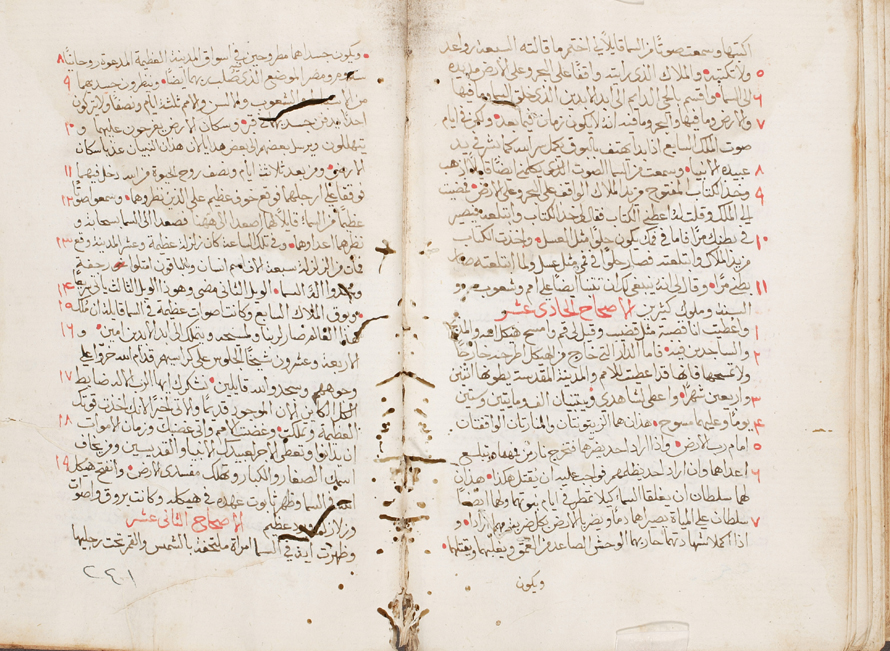 اكتبها وسمعت صوتًا من السما قايلًا لي اختم ما قالته السبعة رواعد
ولا تكتبه والملاك الذي رايته واقفًا على البحر وعلى الارض رفع يده
الى السما واقسم بالحي الدايم الى ابد الابدين الذي خلق السما وما فيها ٦
والارض وما فيها والبحر وما فيه انه لا يكون زمان فيما بعد وفي ايام ٧
صوت الملاك السابع اذا بدا يهتف بالبوق يكمل سر الله كما بشر في يد
عبيده الانبيا وسمعت من السما الصوت الذي يكلمني ايضًا اذهب ٨
وخذ الكتاب المفتوح من يد الملاك الواقف على البحر وعلى الارض فمضيت ٩
الى الملاك وقلت له اعطني الكتاب فقال لي خذ الكتاب وابتلعه فيصير
في بطنك مرًا فاما في فمك يكون حلوًا مثل العسل واخذت الكتاب ١٠
من يد الملاك وابتلعته فصار حلوًا في فمي مثل عسل ولما ابتلعته صار
بطني مرًا وقال لي انه ينبغي لك ان تتنبا ايضًا على امم وشعوب ١١
السنة وملوك كثيرين الاصحاح الحادي عشر
واعطيت انا قصبة مثل قضيب وقيل لي قم وامسح هيكل الله والمذبح ١
والساجدين فيه فاما الدار التي خارج من الهيكل اخرجه خارجًا ٢
ولا تمسحها فانها قد اعطيت للامم والمدينة المقدسة يطوها اثنين
واربعين شهرًا واعطي لشاهدي ويتنبيان الف ومايتين وستين ٣
يومًا وعليهما مسوح هذان هما الزيتونتان والمنارتان الواقفتان ٤
امام رب الارض وان اراد احد يضرهما فتخرج نار من فمهما وتبتلع ٥
اعداهما وان اراد احد يظلمهم فواجب عليه ان يقتل هكذا هذان ٦
لهما سلطان ان يغلقا السما كيلا تمطر في ايام نبوتهما ولهما ايضًا
سلطان على المياة يصيراها دما ويضربا الارض بكل ضربة مهما ارادا و ٧
اذا اكملا شهادتهما حاربهما الوحش الصاعد من العمق ويغلبهما ويقتلهما
ويكون
ويكون جسداهما مطروحين في اسواق المدينة العظيمة المدعوة روحانيًا ٨
سدوم ومصر الموضع الذي صلب ربهما ايضًا وينظرون جسديهما ٩
من القبايل والشعوب والالسن والامم ثلثة ايام ونصفًا ولا يتركون
احدًا يدفن جسديهما في قبر وسكان الارض يفرحون عليهما و ١٠
يتهللون ويرسل بعضهم الى بعض هدايا لان هذان النبيان عذبا سكان
الارض ومن بعد ثلاثة ايام ونصف روح الحيوة من الله دخل فيهما ١١
فوقفا على ارجلهما فوقع خوف عظيم على الذين نظروهما وسمعوا صوتًا ١٢
عظيمًا من السما قايلًا لهما اصعدا الى ههنا فصعدا الى السما بسحابة و
نظرهما اعداوهما وفي تلك الساعة كان زلزلة عظيمة وعشر المدينة وقع ١٣
فمات في الزلزلة سبعة الاف اسم انسان والباقون امتلوا رجفة
ومجدوا اله السما الويل الثاني مضى وهوذا الويل الثالث ياتي سريعًا ١٤
وبوق الملاك السابع وكانت اصوات عظيمة في السما قايلة ان ملك ١٥
هذا العالم صار لربنا ولمسيحه ويتملك الى ابد الابدين امين و ١٦
الاربعة وعشرون شيخًا الجلوس على كراسيهم قدام الله خروا على
وجوههم وسجدوا لله قايلين نشكرك ايها الرب الاله ضابط ١٧
الكل الكاين الان الموجود قديمًا والاتي اخيرًا لانك اخذت قوتك
العظيمة وتملكت وغضبت الامم واتى غضبك وزمان الاموات ١٨
ان يدانوا وتعطي الاجر لعبيدك الانبيا والقديسين ومن يخاف
اسمك الصغار والكبار وتهلك مفسدي الارض وانفتح هيكل ١٩
الله في السما وظهر تابوت عهده في هيكله وكانت بروق واصوات
وزلازل وبرد عظيم الاصحاح الثاني عشر
وظهرت اية في السما امراة ملتحفة بالشمس والقمر تحت رجليها
٢٤١